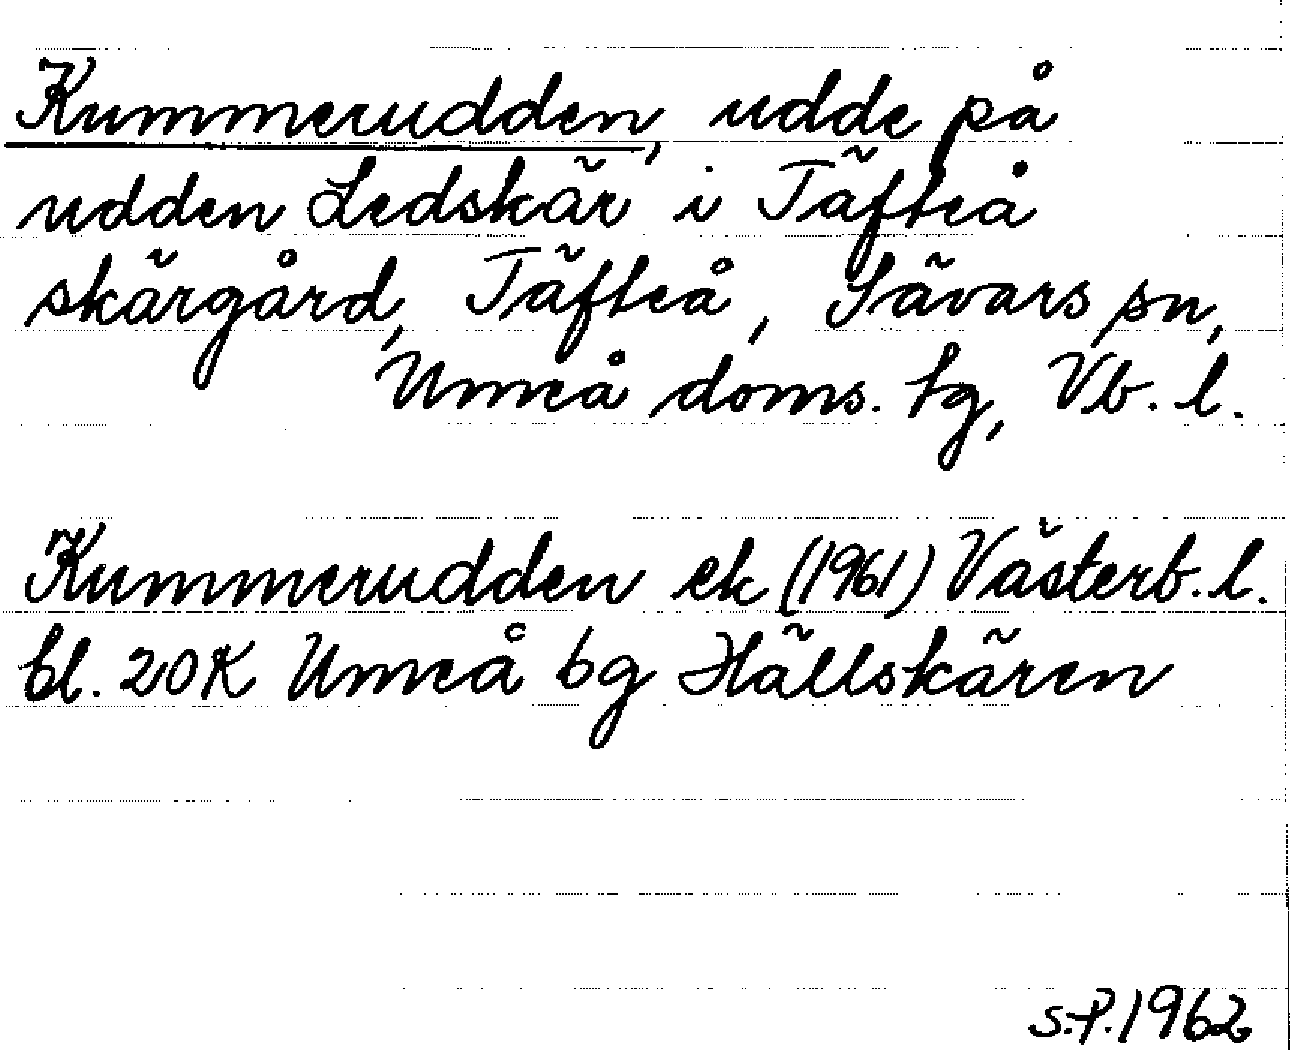 Kummerudden, udde på
udden Ledskär i Täfteå
skärgård, Täfteå, Sävars sn,
Umeå doms. tg, Vb. l.
Kummerudden ek (1961) Västerb. l.
bl. 20K Umeå bg Hällskären
S.P. 1962